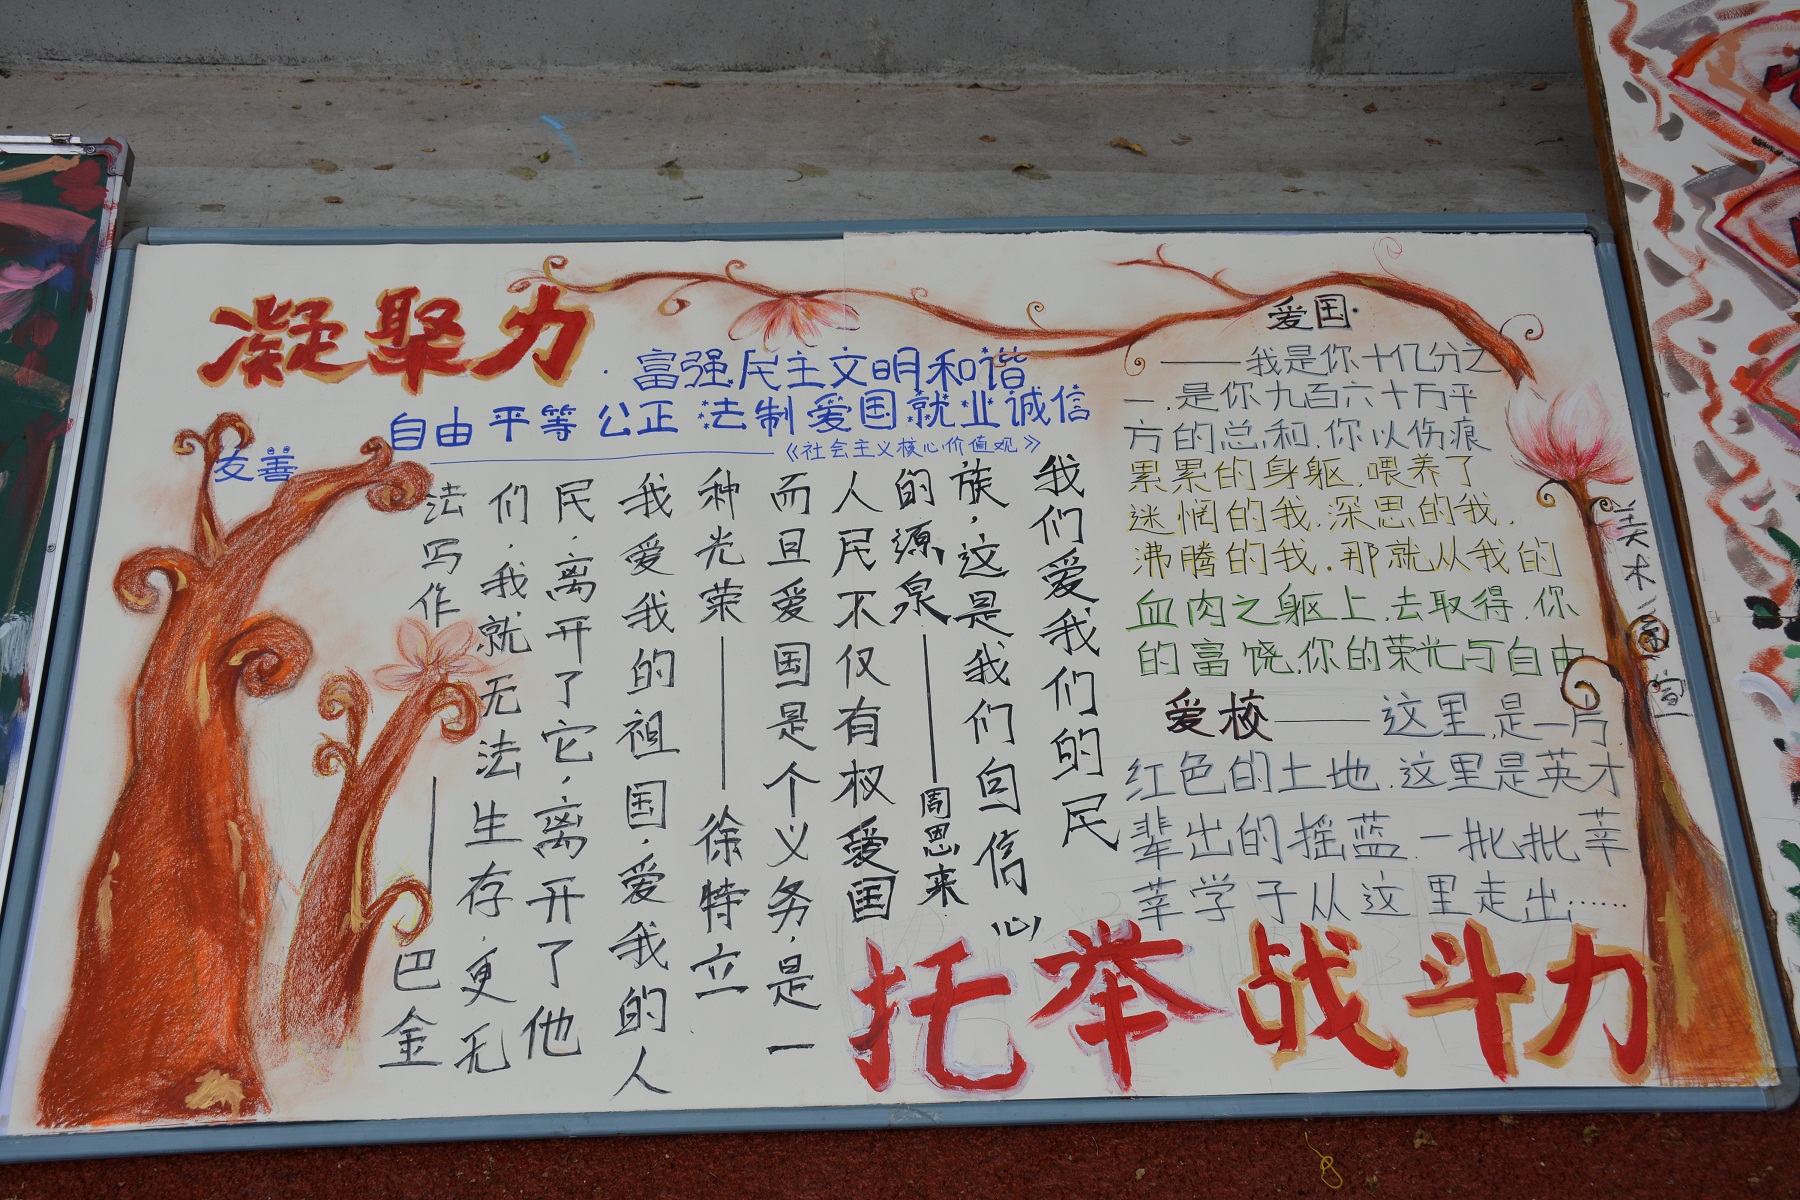 凝聚力
富强民主文明和谐
自由平等公正法制爱国就业诚信
友善
《社会主义核心价值观》
我们爱我们的民
族,这是我们自信心
的源泉——周恩来
人民不仅有权爱国
而且爱国是个义务,是一
种光荣——徐特立
我爱我的祖国,爱我的人
民,离开了它,离开了他
们,我就无法生存,更无
法写作——巴金
爱国·
——我是你十亿分之
一.是你九百六十万平
方的总和.你以伤痕
累累的身躯.喂养了
迷惘的我.深思的我.
沸腾的我.那就从我的
血肉之躯上.去取得.你
的富饶.你的荣光与自由
爱校——这里是一片
红色的土地.这里是英才
辈出的摇蓝.一批批莘
莘学子从这里走出……
托举战斗力
美术系宣